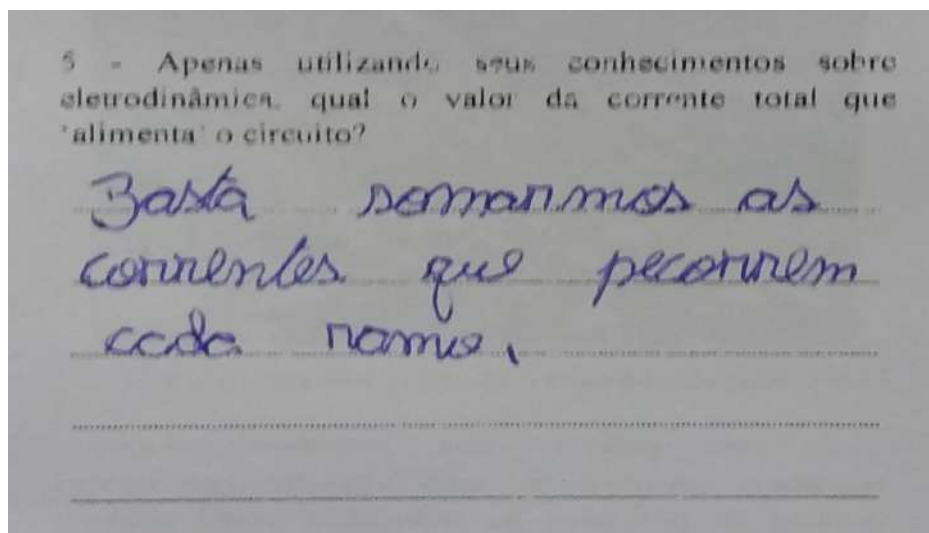 5 - Apenas utilizando seus conhecimentos sobre
eletrodinâmica, qual o valor da corrente total que
'alimenta' o circuito?
Basta somarmos as
correntes que pecorrem
cada ramo.